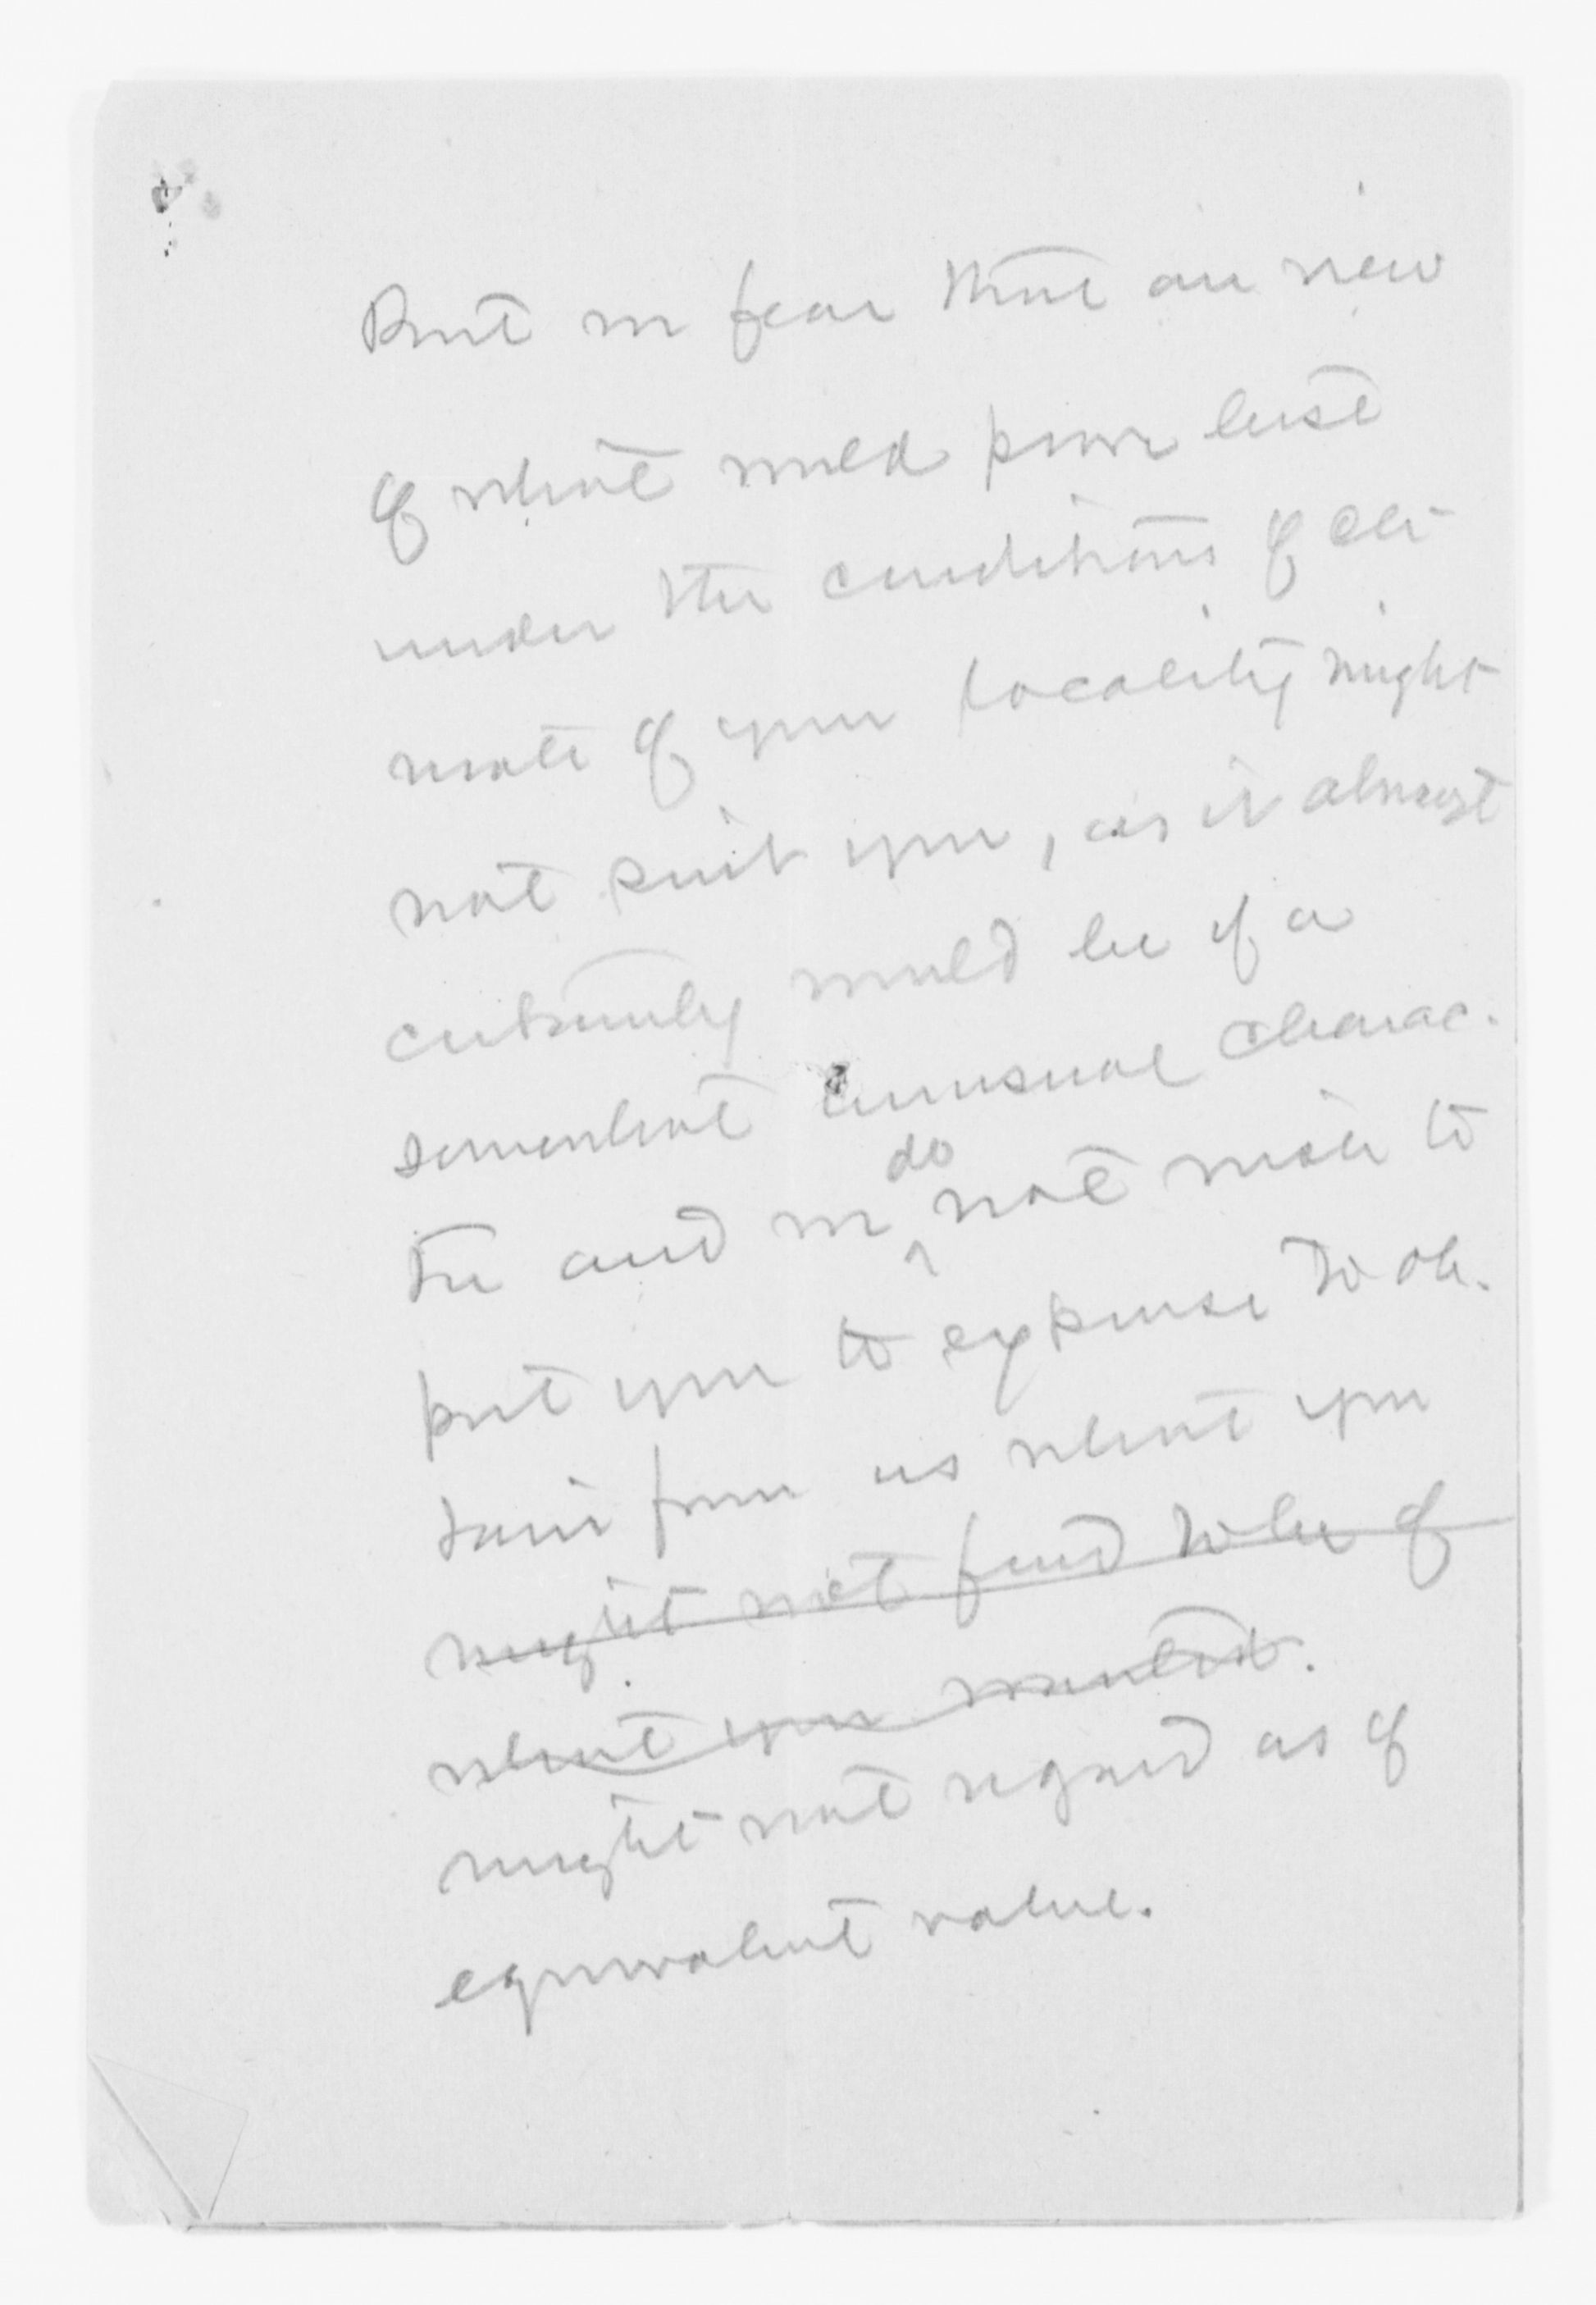 But we fear that our view
of what would prove best
under the conditions of cli-
mate of your locality might
not suit you, as it almost
certainly would be of a
somewhat unusual charac-
do
ter and we ^ not wish to
put you to expense to ob-
tain from us what you
might not find to be of
what you wanted.
might not regard as of
equivalent value.